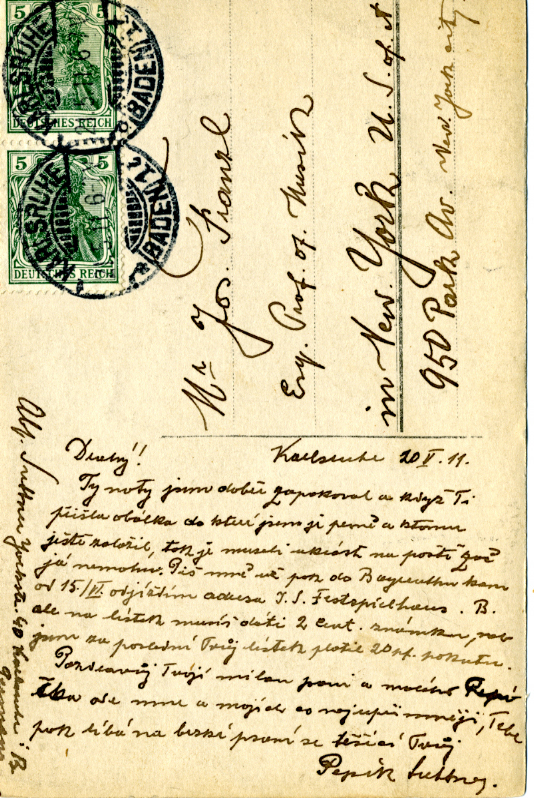 5 5
DEUTSCHES REICH
KARLSRUHE
(BADEN) 1.
5 5
DEUTSCHES REICH
KARLSRUHE
(BADEN) 1.
Mr Jos. Franzl
Prof. of Musik
in New York U. S. of A
950 Park Av. New York city
Karlsruhe 20 V. 11.
Drahý!!
Ty noty jsem dobře zapakoval a když Ti
přišla obálka do které jsem je pevně a
jistě založil, tak je museli ukrást na poště zač
já nemohu. Piš mně už pak do Bayreuthu kam
od 15./VI. odjíždím adresa Festspielhaus. B.
ale na lístek musíš dáti 2 cent. známku,
jsem za poslední Tvůj lístek platil 20 pf. pokutu.
Pozdravuj Tvojí milou paní a
ode mne a mojích co nejupřímněji, Tebe
pak líbá na brzké psaní se těšící Tvůj
Pepík Suttner.
Suttner 40 Karlsruhe i. B.